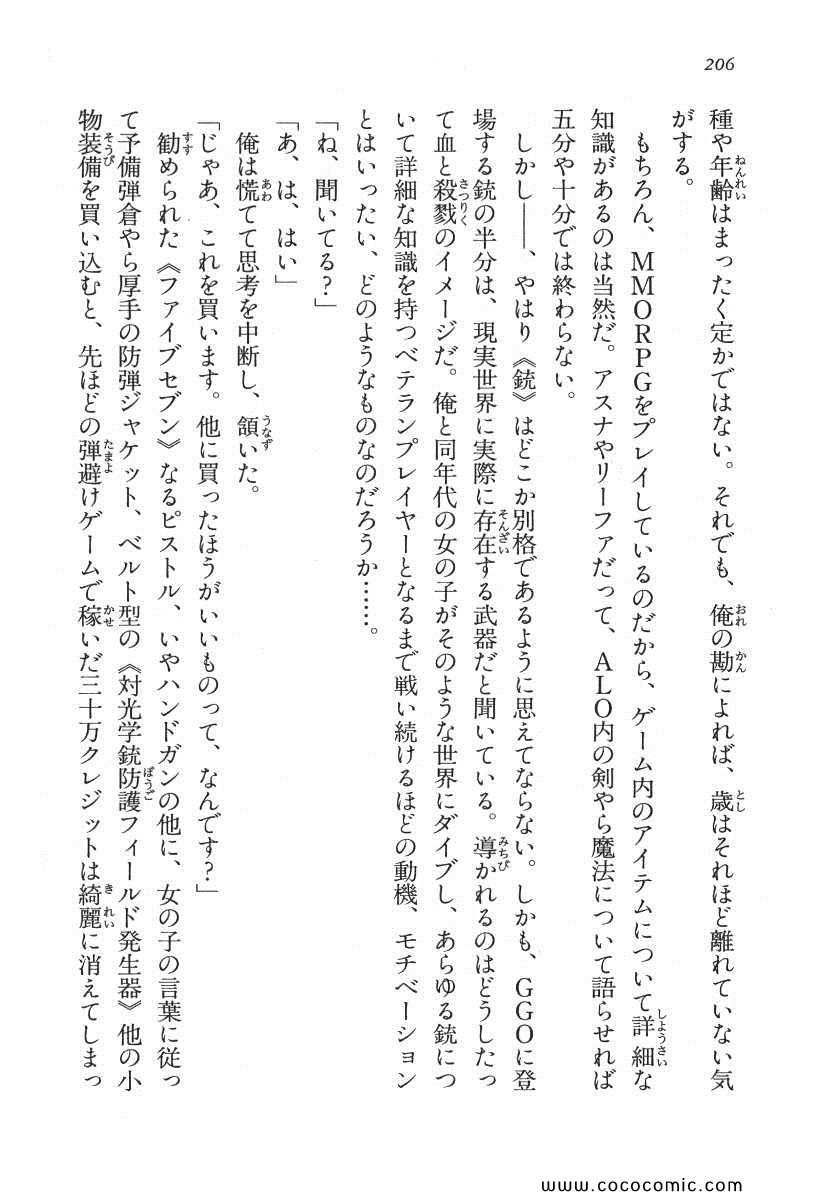 206
種や年齢はまったく定かではない。それでも、俺の勘によれば、歳はそれほど離れていない気
がする。
もちろん、MMORPGをプレイしているのだから、ゲーム内のアイテムについて詳細な
知識があるのは当然だ。アスナやリーファだって、ALO内の剣やら魔法について語らせれば
五分や十分では終わらない。
しかし——、やはり《銃》はどこか別格であるように思えてならない。しかも、GGOに登
場する銃の半分は、現実世界に実際に存在する武器だと聞いている。導かれるのはどうしたっ
て血と殺戮のイメージだ。俺と同年代の女の子がそのような世界にダイブし、あらゆる銃につ
いて詳細な知識を持つベテランプレイヤーとなるまで戦い続けるほどの動機、モチベーション
とはいったい、どのようなものなのだろうか……。
「ね、聞いてる?」
「あ、は、はい」
俺は慌てて思考を中断し、頷いた。
「じゃあ、これを買います。他に買ったほうがいいものって、なんです?」
勧められた《ファイブセブン》なるピストル、いやハンドガンの他に、女の子の言葉に従っ
て予備弾倉やら厚手の防弾ジャケット、ベルト型の《対光学銃防護フィールド発生器》他の小
物装備を買い込むと、先ほどの弾避けゲームで稼いだ三十万クレジットは綺麗に消えてしまっ
www.cococomic.com